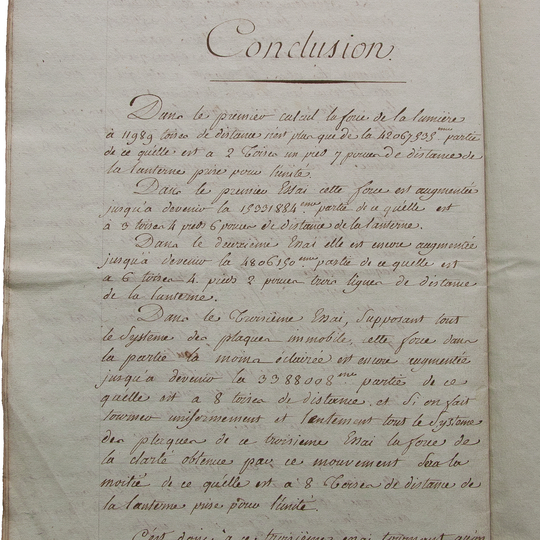 Conclusion.
Dans le premier calcul la force de la lumière
à 11989 toises de distance n'est plus que de la 42067535.me partie
de ce qu'elle est a 2 Toises un pied 7 pouces de distance de
la lanterne prise pour l'unité.
Dans le premier Essai cette force est augmentée
jusqu'a devenir la 15331884.eme partie de ce qu'elle est
à 3 toises 4 pieds 6 pouces de distance de la lanterne.
Dans le deuxième Essai elle est encore augmentée
jusqu'à devenir la 4806150.eme partie de ce qu'elle est
a 6 toises 4. pieds 2 pouces trois lignes de distance
de la lanterne.
Dans le Troisième Essai, Supposant tout
le Systeme des plaques immobile, cette force dans
la partie la moins éclairée est encore augmentée
jusqu'a devenir la 3388008.me partie de ce
qu'elle est a 8 toises de distance, et Si on fait
tourner uniformement et lentement tout le Système
des plaques de ce troisième Essai la force de
la clarté obtenue par ce mouvement Sera la
moitié de ce qu'elle est a 8 Toises de distance de
la lanterne prise pour l'unité.
C'est donc à ce troisième essai tournant